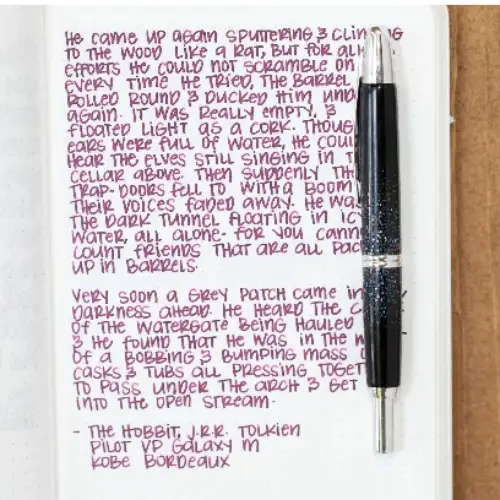 He came up again sputtering & cling
to the wood like a rat, but for all
efforts he could not scramble on
every time he tried, the barrel
rolled round & ducked him und
again. It was really empty, &
floated light as a cork. Thoug
ears were full of water, he coul
hear the elves still singing in t
cellar above. Then suddenly th
trap-doors fell to with a boom
their voices faded away. He wa
the dark tunnel floating in ic
water, all alone- for you cann
count friends that are all pac
up in barrels.
Very soon a grey patch came in
darkness ahead. He heard the c
of the watergate being hauled
& he found that he was in the m
of a bobbing & bumping mass o
casks & tubs all pressing toget
to pass under the arch & get
into the open stream.
- The Hobbit, J.R.R. Tolkien
Pilot VP Galaxy M
Kobe Bordeaux